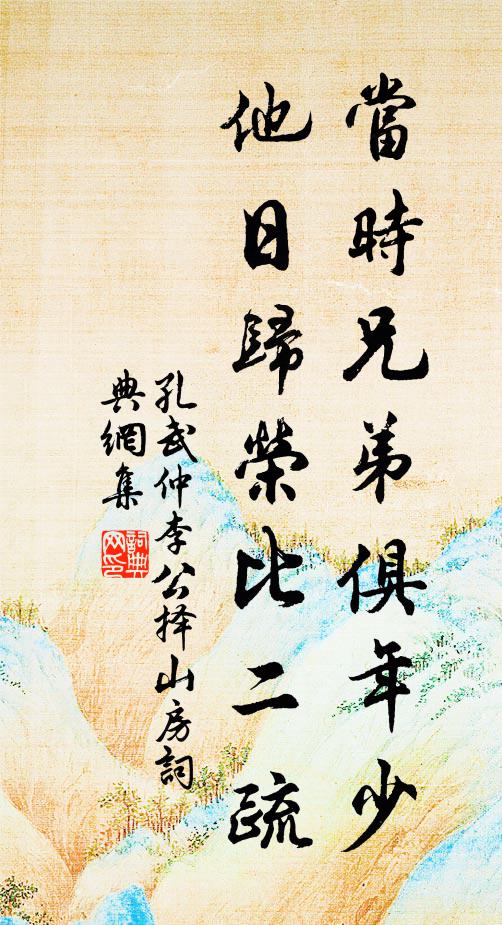 當時兄弟俱年少
他日歸榮比二疏
孔武仲李公择山房詞
典網集
詞典
网印